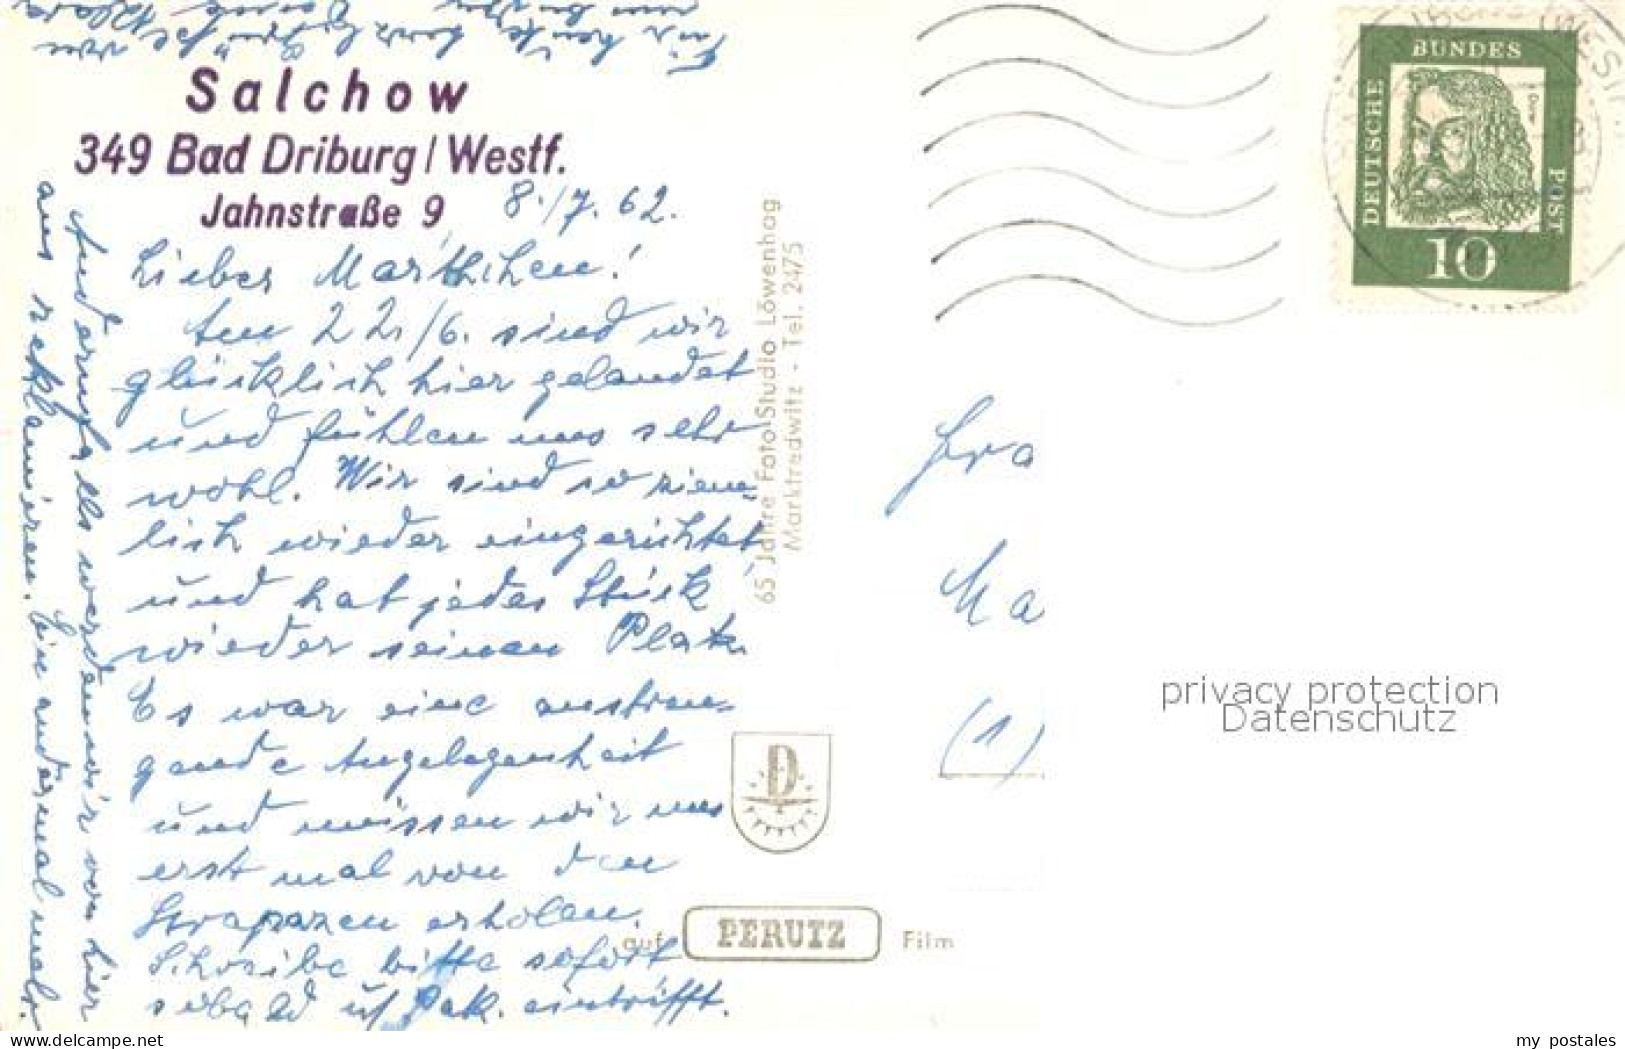 Salchow
349 Bad Driburg / Westf.
Jahnstraße 9
8./7. 62.
Liebes Marthchen!
Am 22./6. sind wir
glücklich hier gelandet
und fühlen uns sehr
wohl. Wir sind so ziem-
lich wieder eingerichtet
und hat jedes Stück
wieder seinen Platz.
Es war eine anstren-
gende Angelegenheit
und müssen wir uns
erst mal von den
Strapazen erholen.
Schreibe bitte sofort
sobald Pak. eintrifft.
andernfalls werden wir von hier
aus reklamieren. Ein andermal mehr.
Für heute von
65 Jahre Foto-Studio Löwenhag
Marktredwitz - Tel. 2475
D
auf PERUTZ Film
DEUTSCHE
BUNDES
POST
10
(WESTF
Fra
Ma
(1)
privacy protection
Datenschutz
my postales